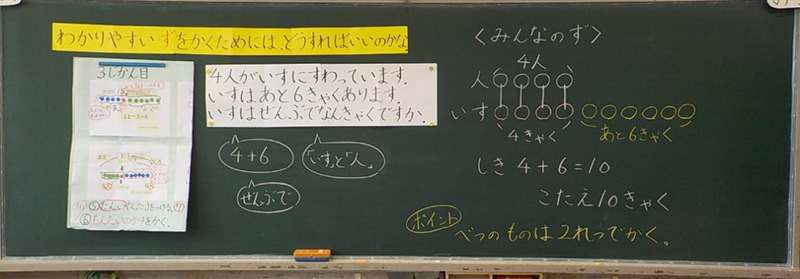 わかりやすいずをかくためには、どうすればいいのかな
3じかん目
11-5=6
⑥もんだいのかずをかく。
4人がいすにすわっています。
いすはあと6きゃくあります。
いすはぜんぶでなんきゃくですか。
4+6
「いすと人」
ぜんぶで
〈みんなのず〉
4人
人
いす
4きゃく
あと6きゃく
しき 4+6=10
こたえ10きゃく
ポイント
べつのものは2れつでかく。